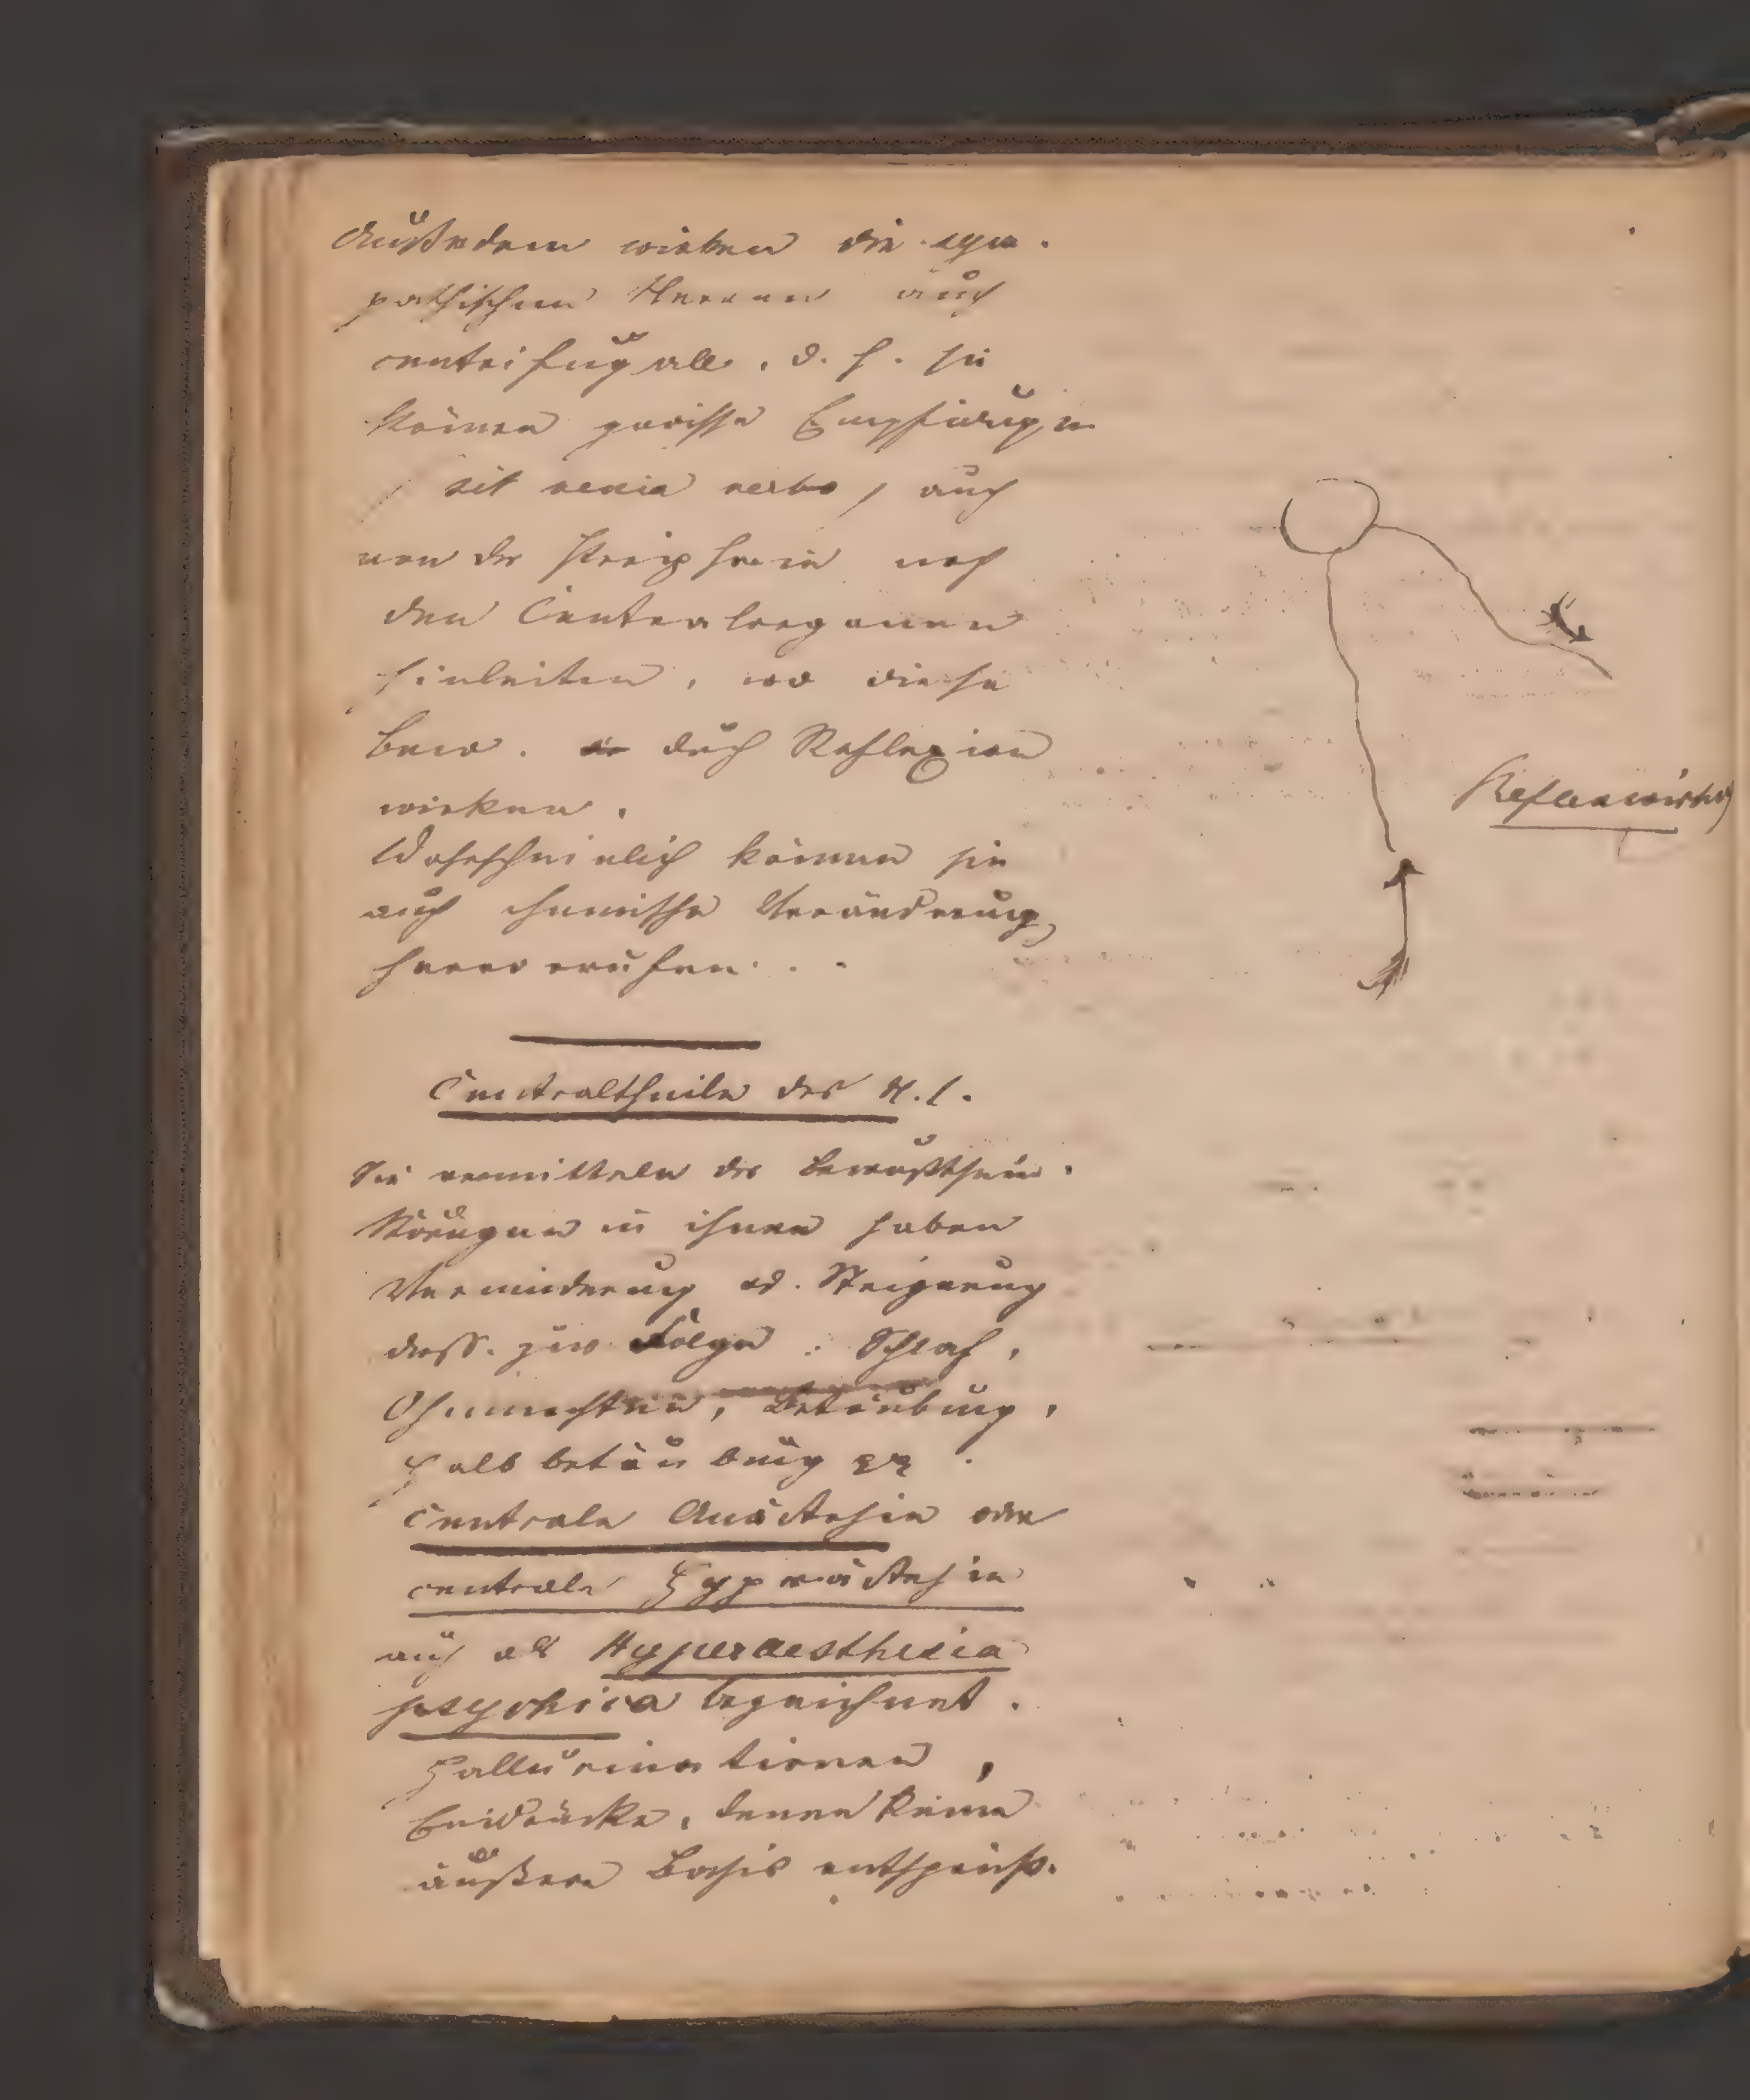 Außerdem wirken die sym-
pathischen Nerven auch
centrifugall, d. h. sie
können gewisse Empfindungen
/ sit venia verbo / auch
von der Peripherie nach
den Centralorganen
hinleiten, wo diese
bew. durch Reflexion
wirken.
Wahrscheinlich können sie
auch chemische Veränderung
hervorrufen.
Centraltheile des N. S.
Sie vermitteln das Bewußtsein.
Störungen in ihnen haben
Verminderung od. Steigerung
dess. zur Folge : Schlaf,
Ohnmachten, Betäubung,
Halbbetäubung
Centrale Anästhesie oder
centrale Hyperästhesie
auch als Hyperaesthesia
psychica bezeichnet.
Hallucinationen,
Eindrücke, denen keine
äußere Basis entspricht.
Reflexwirkung